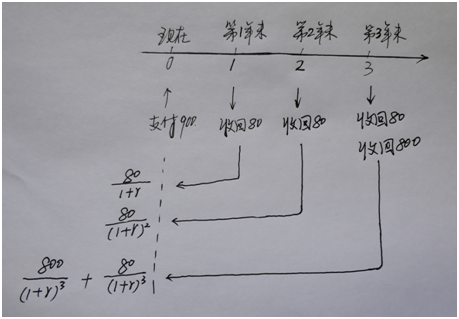 现在 第1年末 第2年末 第3年末
0 1 2 3
支付900 收回80 收回80 收回80
收回800
80/(1+r)
80/(1+r)²
800/(1+r)³ + 80/(1+r)³